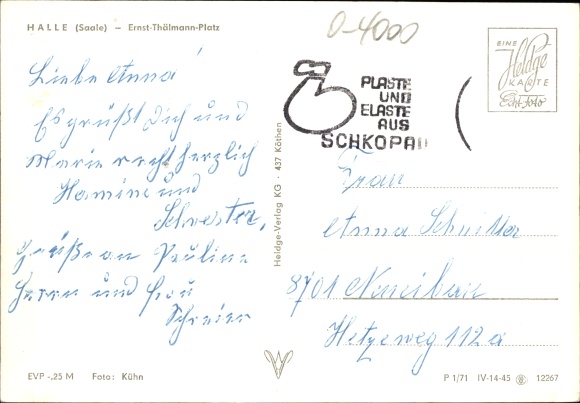 HALLE (Saale) – Ernst-Thälmann-Platz
0-4000
EINE
Heldge
KARTE
Echt-foto
PLASTE
UND
ELASTE
AUS
SCHKOPAU
Liebe Anna
Es grüßt Dich und
Marie recht herzlich
und
Schwester,
Grüße an Pauline
Herrn und Frau
Schreier
Heldge-Verlag KG · 437 Köthen
Frau
Anna
8701
Hetzeweg 112a
EVP -.25 M Foto: Kühn
P 1/71 IV-14-45 12267